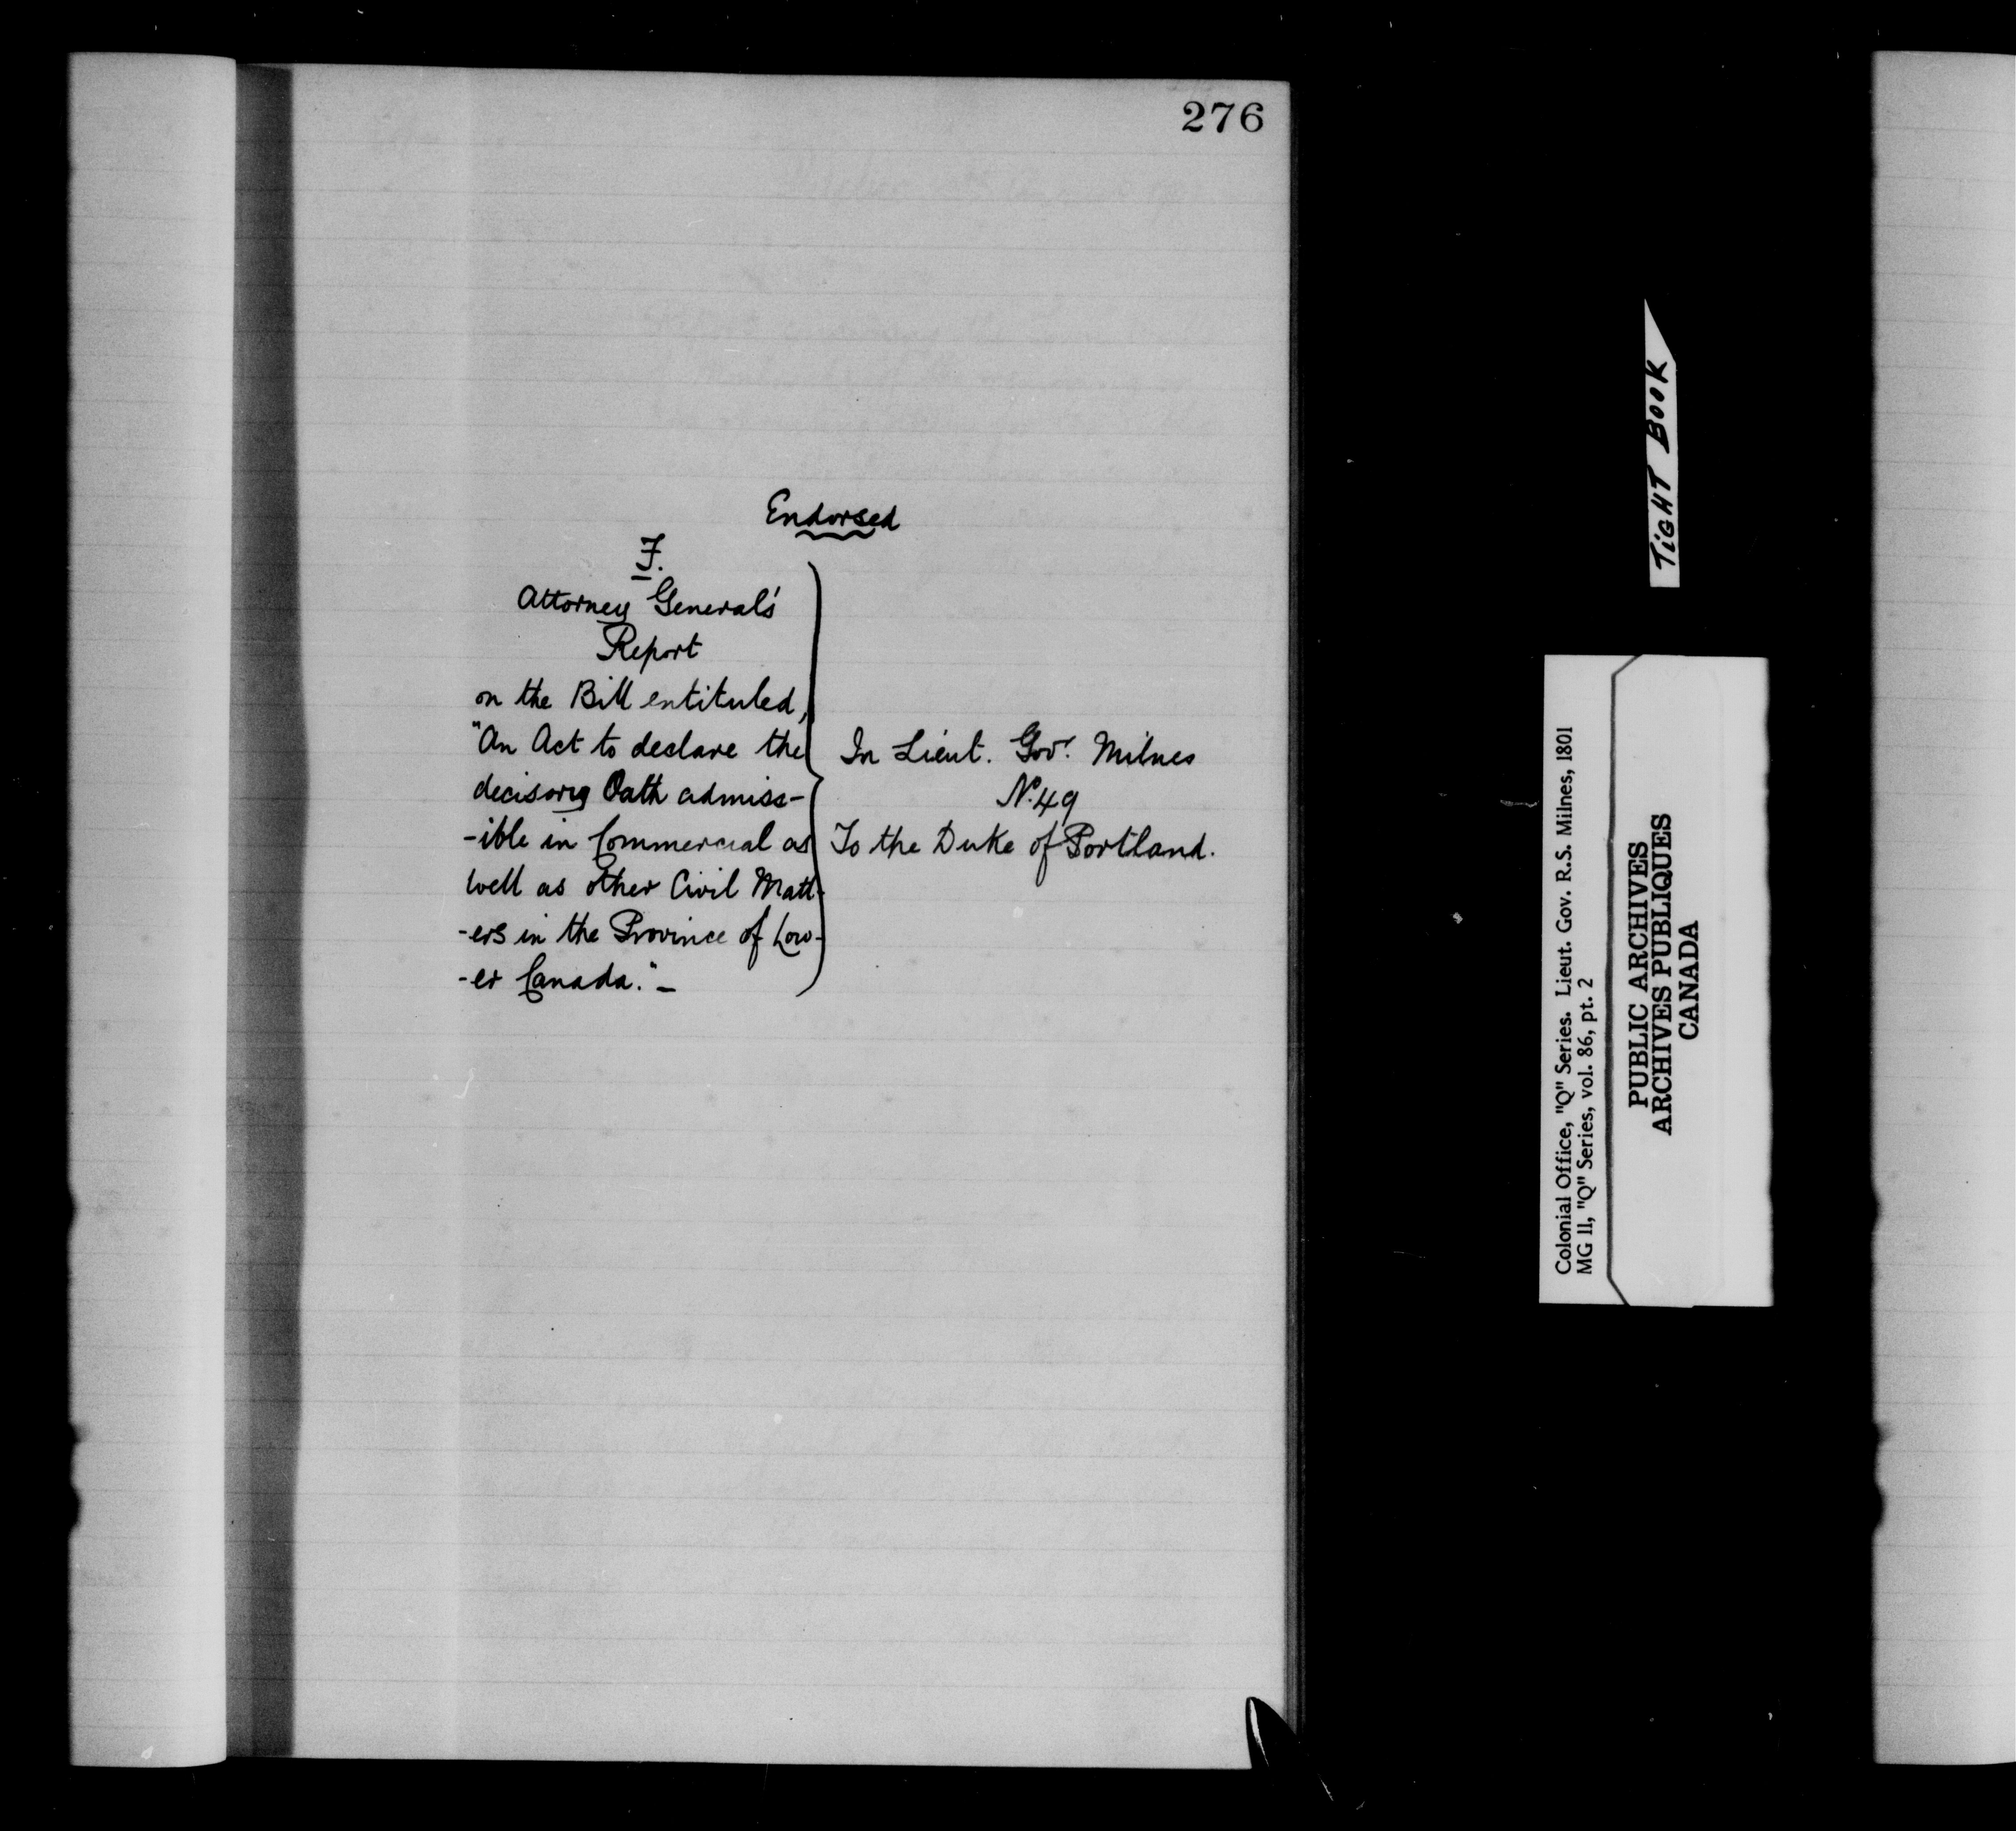 276
Endorsed
F.
Attorney General's
Report
on the Bill entituled,
"An Act to declare the
decisory Oath admiss-
-ible in Commercial as
well as other Civil Matt-
-ers in the Province of Low-
-er Canada." -
In Lieut. Govr. Milnes
No. 49
To the Duke of Portland.
TIGHT BOOK
Colonial Office, "Q" Series. Lieut. Gov. R.S. Milnes, 1801
MG 11, "Q" Series, vol. 86, pt. 2
PUBLIC ARCHIVES
ARCHIVES PUBLIQUES
CANADA